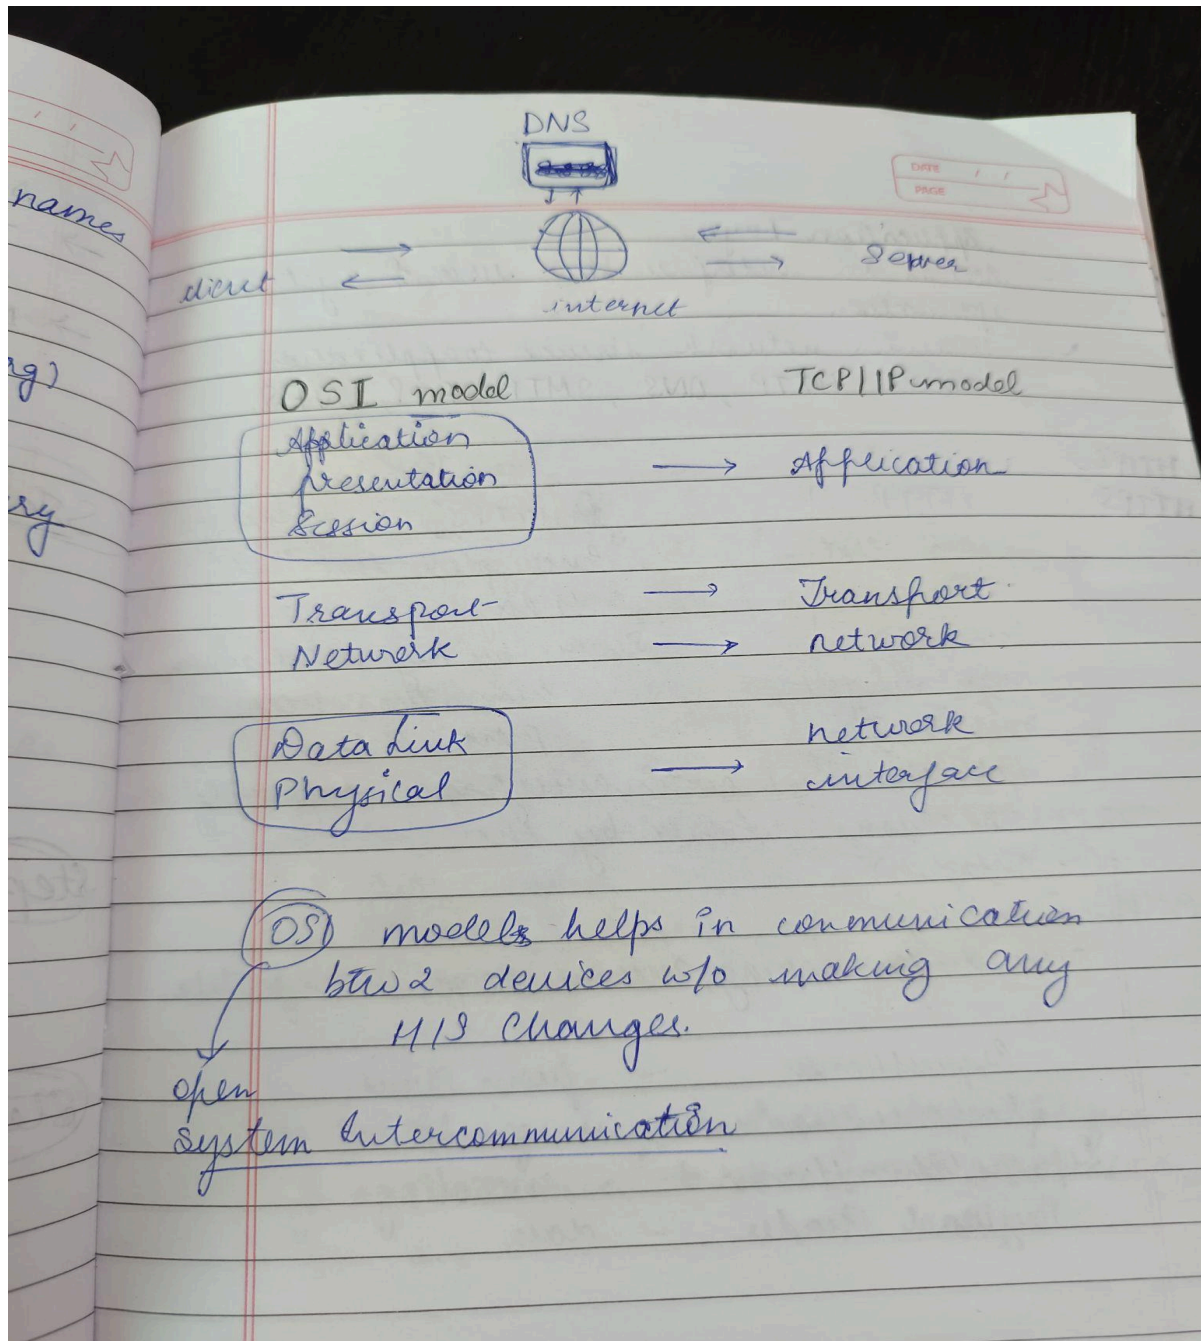 DNS
DATE
PAGE
names
client
Server
internet
rg)
OSI model
TCP/IP model
Application
Presentation
Session
Application
ry
Transport
Transport
Network
network
Data Link
Physical
network
interface
OSI models helps in communication
btw 2 devices w/o making any
H/S changes.
open
System Intercommunication